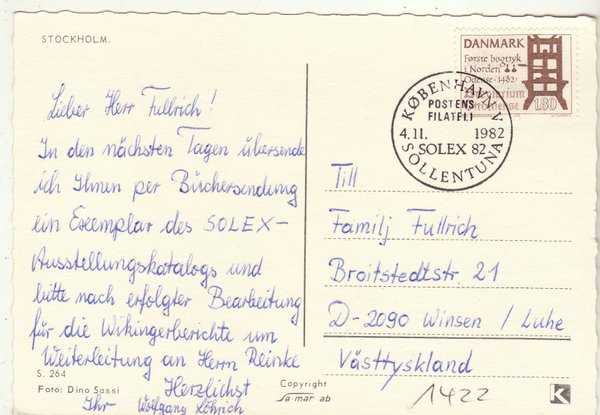 STOCKHOLM.
Lieber Herr Fullrich!
In den nächsten Tagen übersende
ich Ihnen per Büchersendung
ein Exemplar des SOLEX-
Ausstellungskatalogs und
bitte nach erfolgter Bearbeitung
für die Wikingerberichte um
Weiterleitung an Herrn Reinke
Herzlichst
Ihr Wolfgang Löhrich
S. 264
Foto: Dino Sassi
Copyright
sa-mar ab
DANMARK
Første bogtryk
i Norden
Odense · 1482
1.80
KØBENHAVN V
POSTENS
FILATELI
4.11. 1982
SOLEX 82
SOLLENTUNA
Till
Familj Fullrich
Broitstedtstr. 21
D-2090 Winsen / Luhe
Västtyskland
1422
K